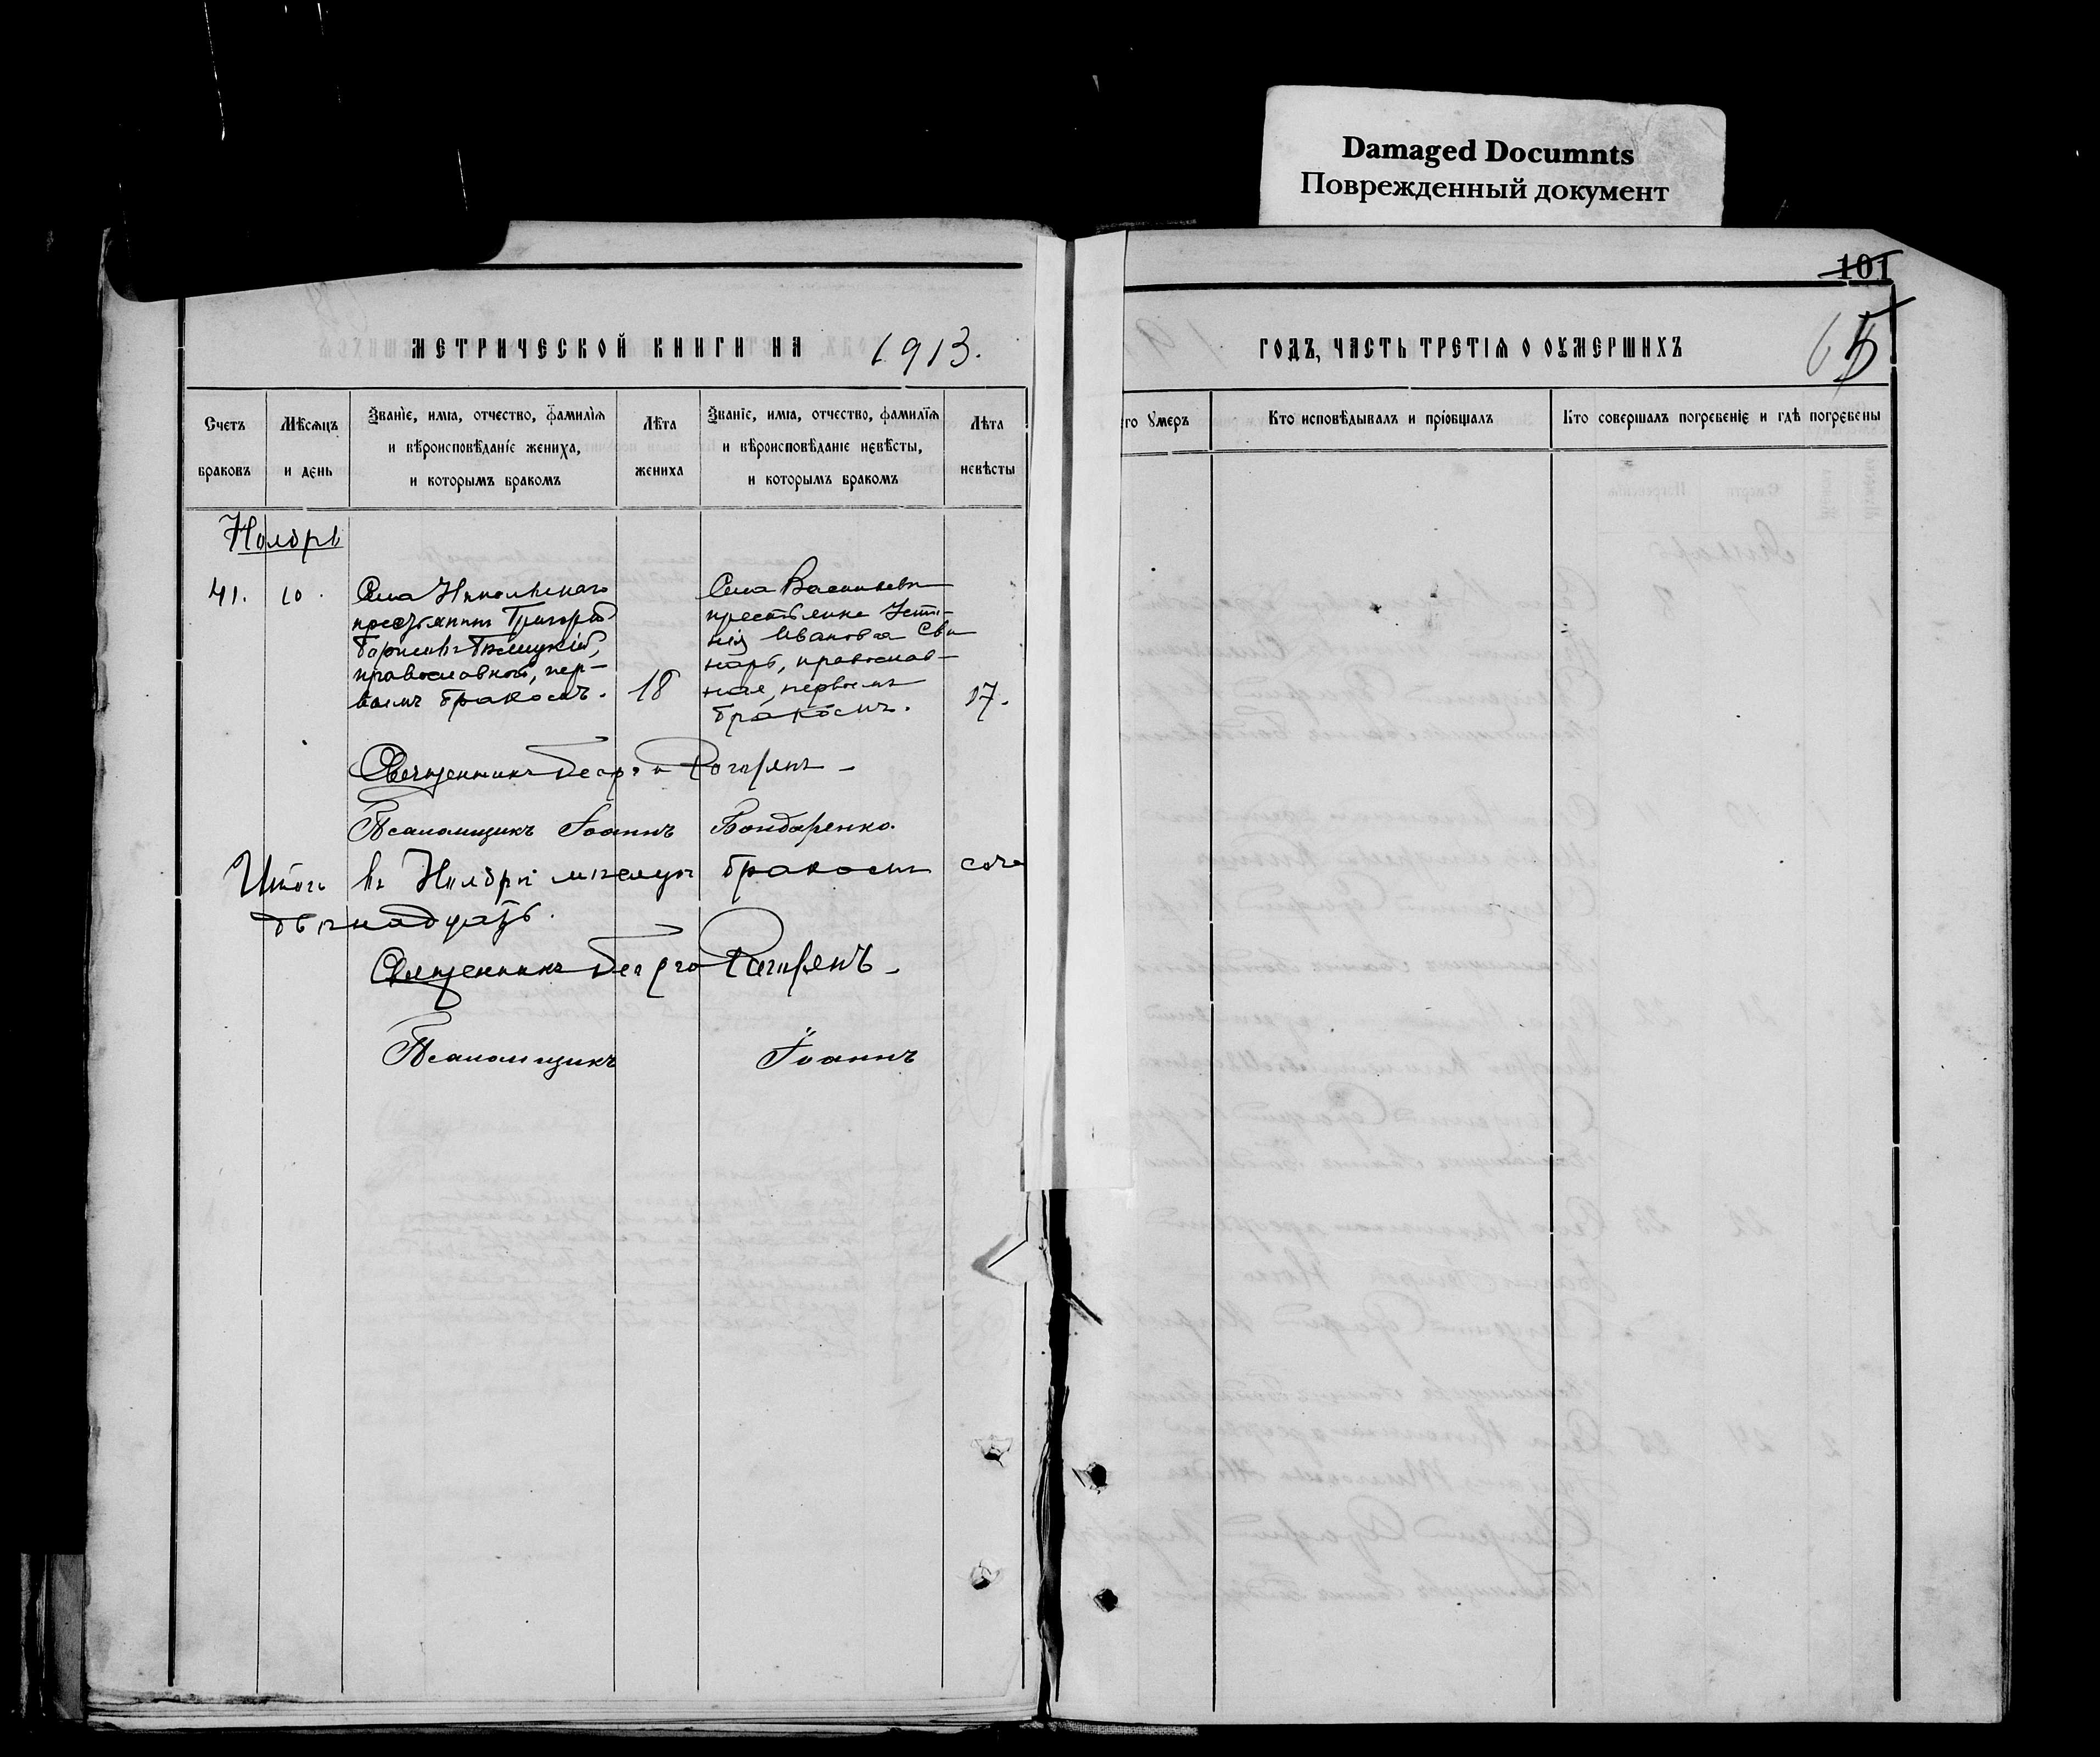 Damaged Documnts
Поврежденный документ
101
65
МЕТРИЧЕСКОЙ КНИГИ НА 1913.
Счетъ браковъ
Мѣсяцъ и день
Званіе, имя, отчество, фамилія и вѣроисповѣданіе жениха, и которымъ бракомъ
Лѣта жениха
Званіе, имя, отчество, фамилія и вѣроисповѣданіе невѣсты, и которымъ бракомъ
Лѣта невѣсты
Ноябрь
41. 10.
Села Никольскаго
крестьянинъ Григорій
православный, пер-
вымъ бракомъ. 18
Села Васильевки
крестьянка Усти-
нія Иванова Сви
нарь, православ-
ная, первымъ
бракомъ. 17.
Священникъ Георгій
Псаломщикъ Іоаннъ Бондаренко.
Итого въ Ноябрѣ мѣсяцѣ бракомъ соче
Священникъ Георгій
Псаломщикъ Іоаннъ
ГОДЪ, ЧАСТЬ ТРЕТІЯ О ОУМЕРШИХЪ
го умеръ
Кто исповѣдывалъ и пріобщалъ
Кто совершалъ погребеніе и гдѣ погребены